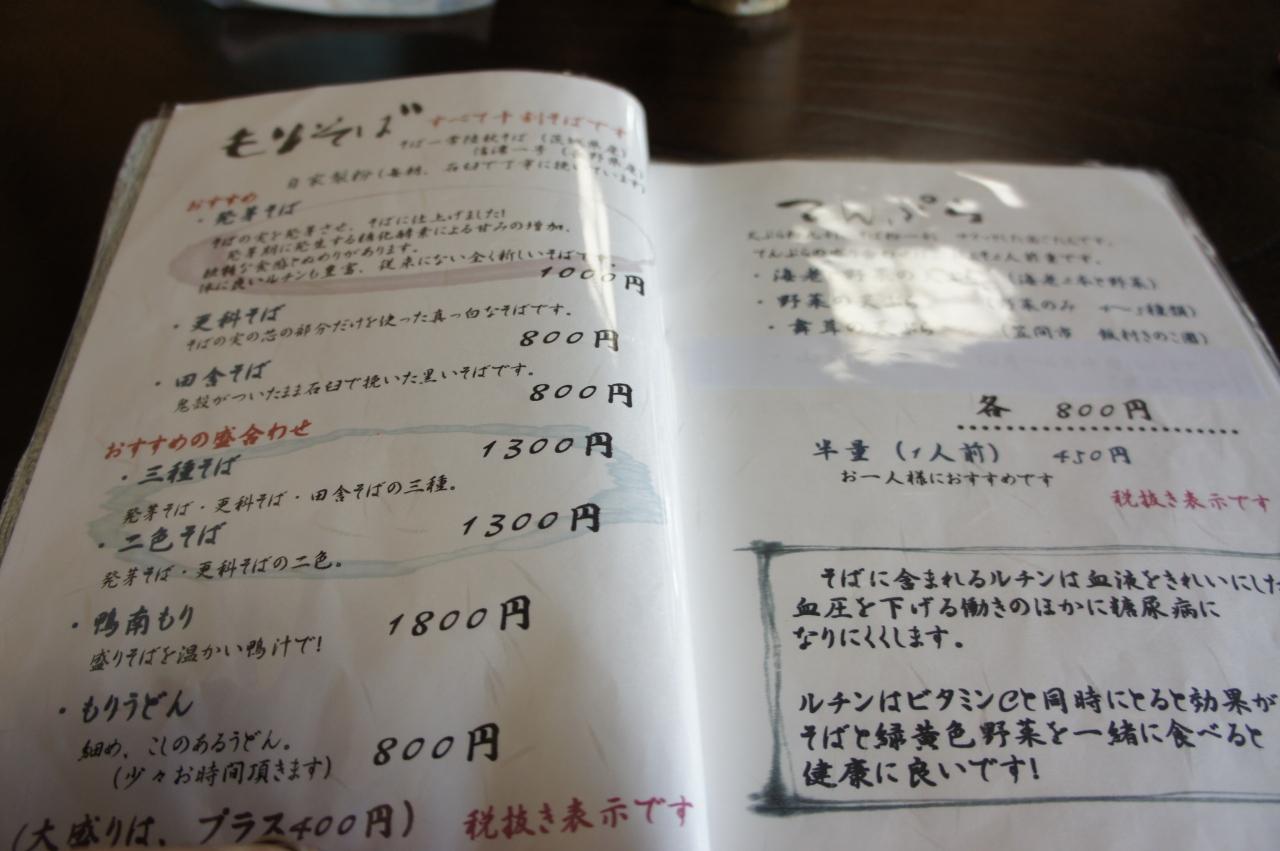 もりそば すべて十割そばです
そばー常陸秋そば（茨城県産）
信濃一号（長野県産）
自家製粉（毎朝、石臼で丁寧に挽いています）
おすすめ
・発芽そば
そばの実を発芽させ、そばに仕上げました！
発芽期に発生する糖化酵素による甘みの増加、
独特な食感とぬめりがあります。
体に良いルチンも豊富、従来にない全く新しいそばです。
1000円
・更科そば
そばの実の芯の部分だけを使った真っ白なそばです。
800円
・田舎そば
鬼殻がついたまま石臼で挽いた黒いそばです。
800円
おすすめの盛合わせ
・三種そば 1300円
発芽そば・更科そば・田舎そばの三種。
・二色そば 1300円
発芽そば・更科そばの二色。
・鴨南もり 1800円
盛りそばを温かい鴨汁で！
・もりうどん
細め、こしのあるうどん。 800円
（少々お時間頂きます）
（大盛りは、プラス400円） 税抜き表示です
てんぷら
てんぷらの 2人前量です。
・海老 野菜の （海老2本と野菜）
・野菜の天ぷら 野菜のみ 4〜5種類）
・舞茸の天ぷら （笠間市 飯村きのこ園）
各 800円
半量（1人前） 450円
お一人様におすすめです
税抜き表示です
そばに含まれるルチンは血液をきれいにした
血圧を下げる働きのほかに糖尿病に
なりにくくします。
ルチンはビタミンCと同時にとると効果が
そばと緑黄色野菜を一緒に食べると
健康に良いです！